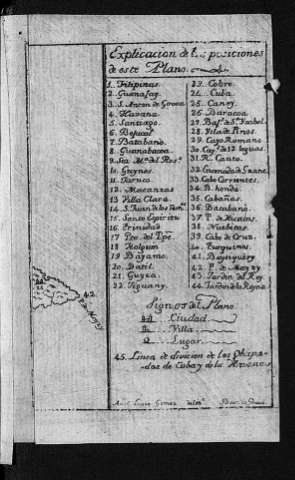 Explicacion de las posiciones
de este Plano.
1. Filipinas
2. Guanajay.
3. S. Anton de
4. Havana
5. Santiago.
6. Bejucal
7. Batabanó
8. Guanabacoa
9. Sta. Mª. del Rosº.
10. Guynes
11. Jaruco
12. Matanzas
13. Villa Clara
14. S. Juan de los
15. Santo Espiritu
16. Trinidad
17. Pto. del Ppe.
18. Holguin
19. Bayamo
20. Datil
21. Guysa
22. Tiguany
23. Cobre.
24. Cuba.
25. Caney.
26. Baracoa
27.
28. Ysla de Pinos.
29. Cayo Romano
30. de 12 leguas
31. R. Canto.
32.
33. Cabo Corrientes.
34. B. honda
35. Cabañas
36. Batabanó
37. P. de Xicains
38. Nuebitas
39. Cabo de Cruz.
40.
41.
42. P. de Mayzy
43. Jardin del Rey
44. Jardin de la Reyna
Signos del Plano.
Ciudad
Villa
Lugar
45. Linea de division de los Obispa-
dos de Cuba y de la Havana